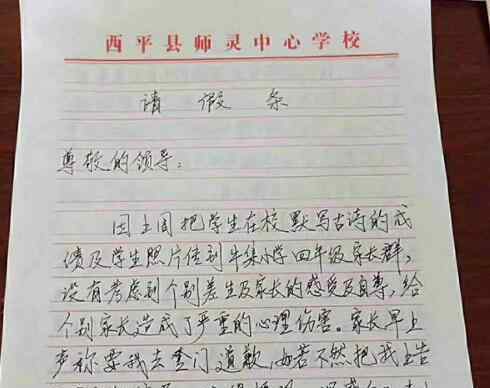 西平县师灵中心学校
请假条
尊敬的领导：
因上周把学生在校默写古诗的成
绩及学生照片传到牛集小学四年级家长群，
没有考虑到个别差生及家长的感受及自尊，给
个别家长造成了严重的心理伤害。家长早上
声称要我去登门道歉，如若不然把我上告